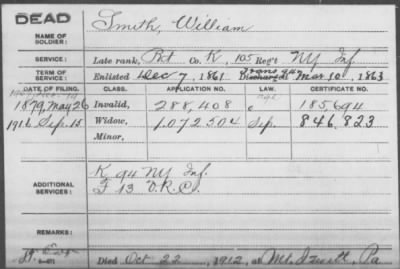 DEAD
Smith, William
NAME OF SOLDIER:
SERVICE: Late rank, Pvt Co. K, 105 Reg't NY Inf.
TERM OF SERVICE: Enlisted Dec 7, 1861 Discharged Mar 10, 1863
DATE OF FILING. CLASS. APPLICATION NO. LAW. CERTIFICATE NO.
1879, May 26 Invalid, 288,408 c 185,694
1916 Sep. 15 Widow, 1,072,504 Sep. 846,823
Minor,
K 94 NY Inf.
ADDITIONAL SERVICES: F 13 V.R.C.
REMARKS:
Died Oct 22, 1912, at Mt. Pa